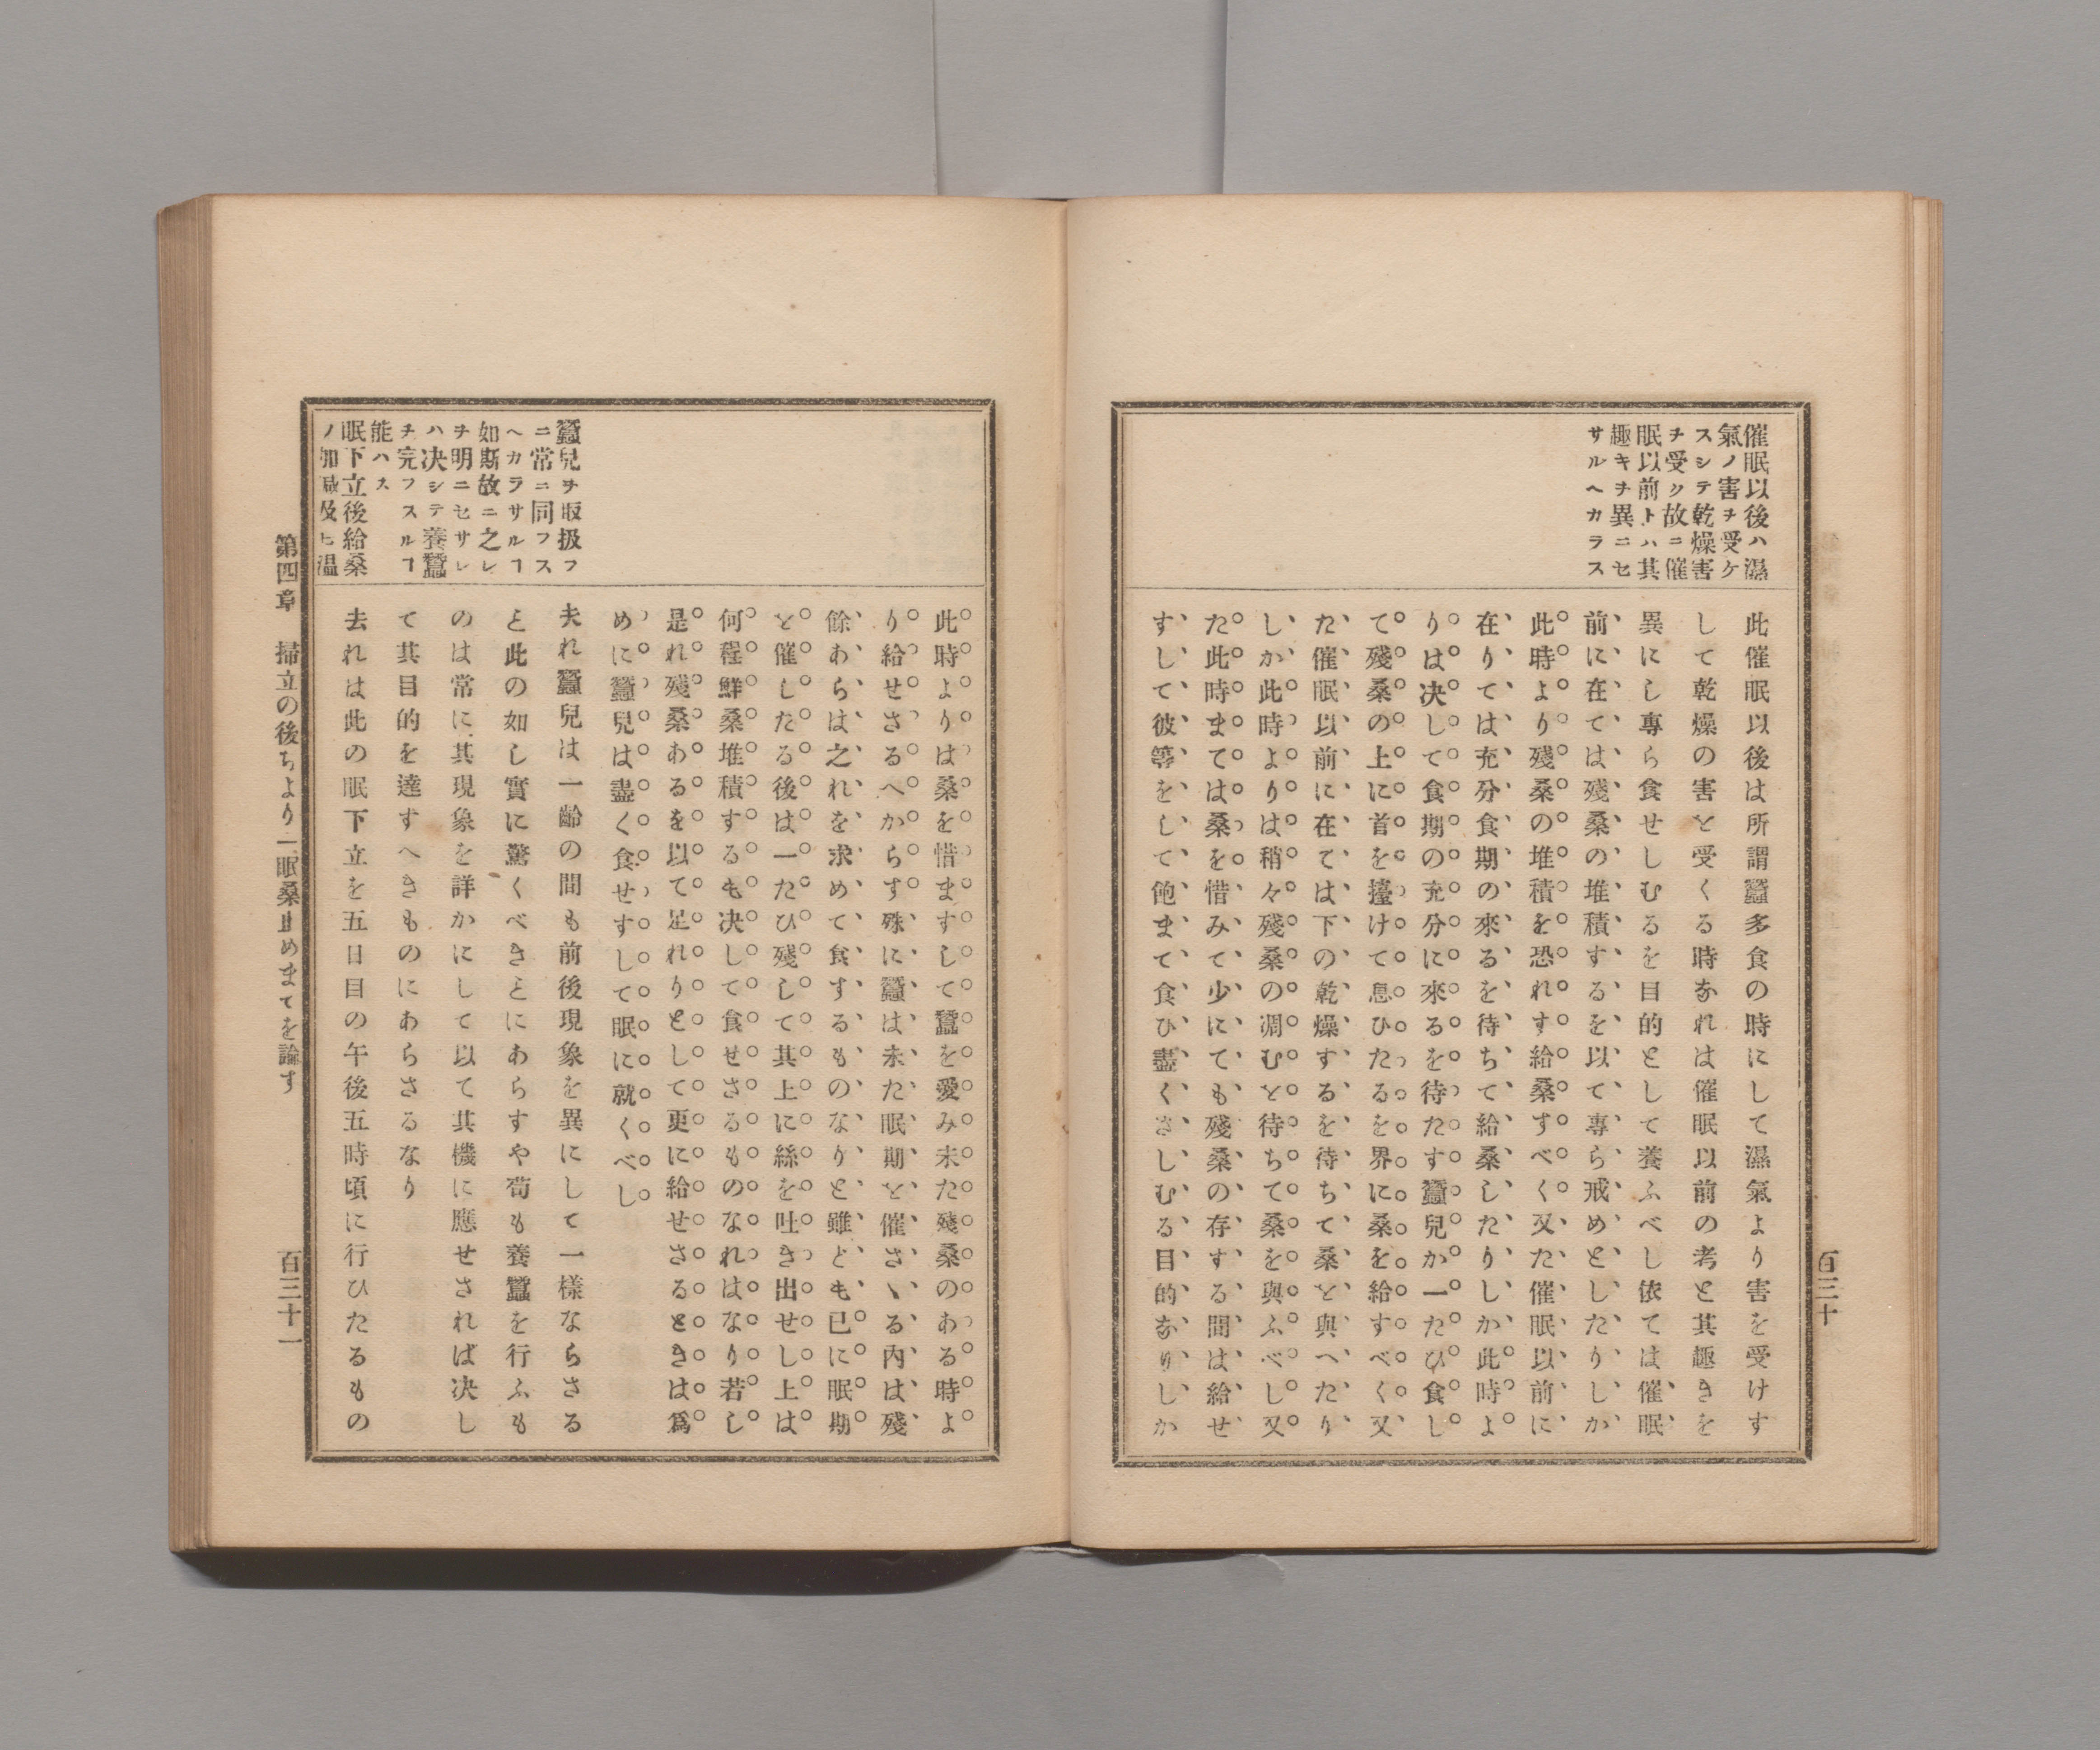 百三十
催眠以後ハ濕
氣ノ害ヲ受ケ
スシテ乾燥害
ヲ受ク故ニ催
眠以前トハ其
趣キヲ異ニセ
サルヘカラス
此催眠以後は所謂蠶多食の時にして濕氣より害を受けす
して乾燥の害を受くる時なれは催眠以前の考と其趣きを
異にし專ら食せしむるを目的として養ふべし依ては催眠
前に在ては殘桑の堆積するを以て專ら戒めとしたりしか
此時より殘桑の堆積を恐れす給桑すべく又た催眠以前に
在りては充分食期の來るを待ちて給桑したりしか此時よ
りは决して食期の充分に來るを待たす蠶兒か一たび食し
て殘桑の上に首を擡けて息ひたるを界に桑を給すべく又
た催眠以前に在ては下の乾燥するを待ちて桑を與へたり
しか此時よりは稍々殘桑の凋むを待ちて桑を與ふべし又
た此時まては桑を惜みて少にても殘桑の存する間は給せ
すして彼等をして飽まて食ひ盡くさしむる目的なりしか
此時よりは桑を惜ますして蠶を愛み未た殘桑のある時よ
り給せさるへからす殊に蠶は未た眠期を催さゝる内は殘
餘あらは之れを求めて食するものなりと雖とも已に眠期
を催したる後は一たひ殘して其上に絲を吐き出せし上は
何程鮮桑堆積するも决して食せさるものなれはなり若し
是れ殘桑あるを以て足れりとして更に給せさるときは爲
めに蠶兒は盡く食せすして眠に就くべし
蠶兒ヲ取扱フ
ニ常ニ同フス
ヘカラサルヿ
如斯故ニ之レ
ヲ明ニセサレ
ハ决シテ養蠶
ヲ完フスルヿ
能ハス
夫れ蠶兒は一齡の間も前後現象を異にして一樣ならさる
と此の如し實に驚くべきとにあらすや苟も養蠶を行ふも
のは常に其現象を詳かにして以て其機に應せされば决し
て其目的を達すへきものにあらさるなり
眠下立後給桑
ノ加减及ヒ温
去れは此の眠下立を五日目の午後五時頃に行ひたるもの
第四章　掃立の後ちより一眠桑止めまてを論す
百三十一